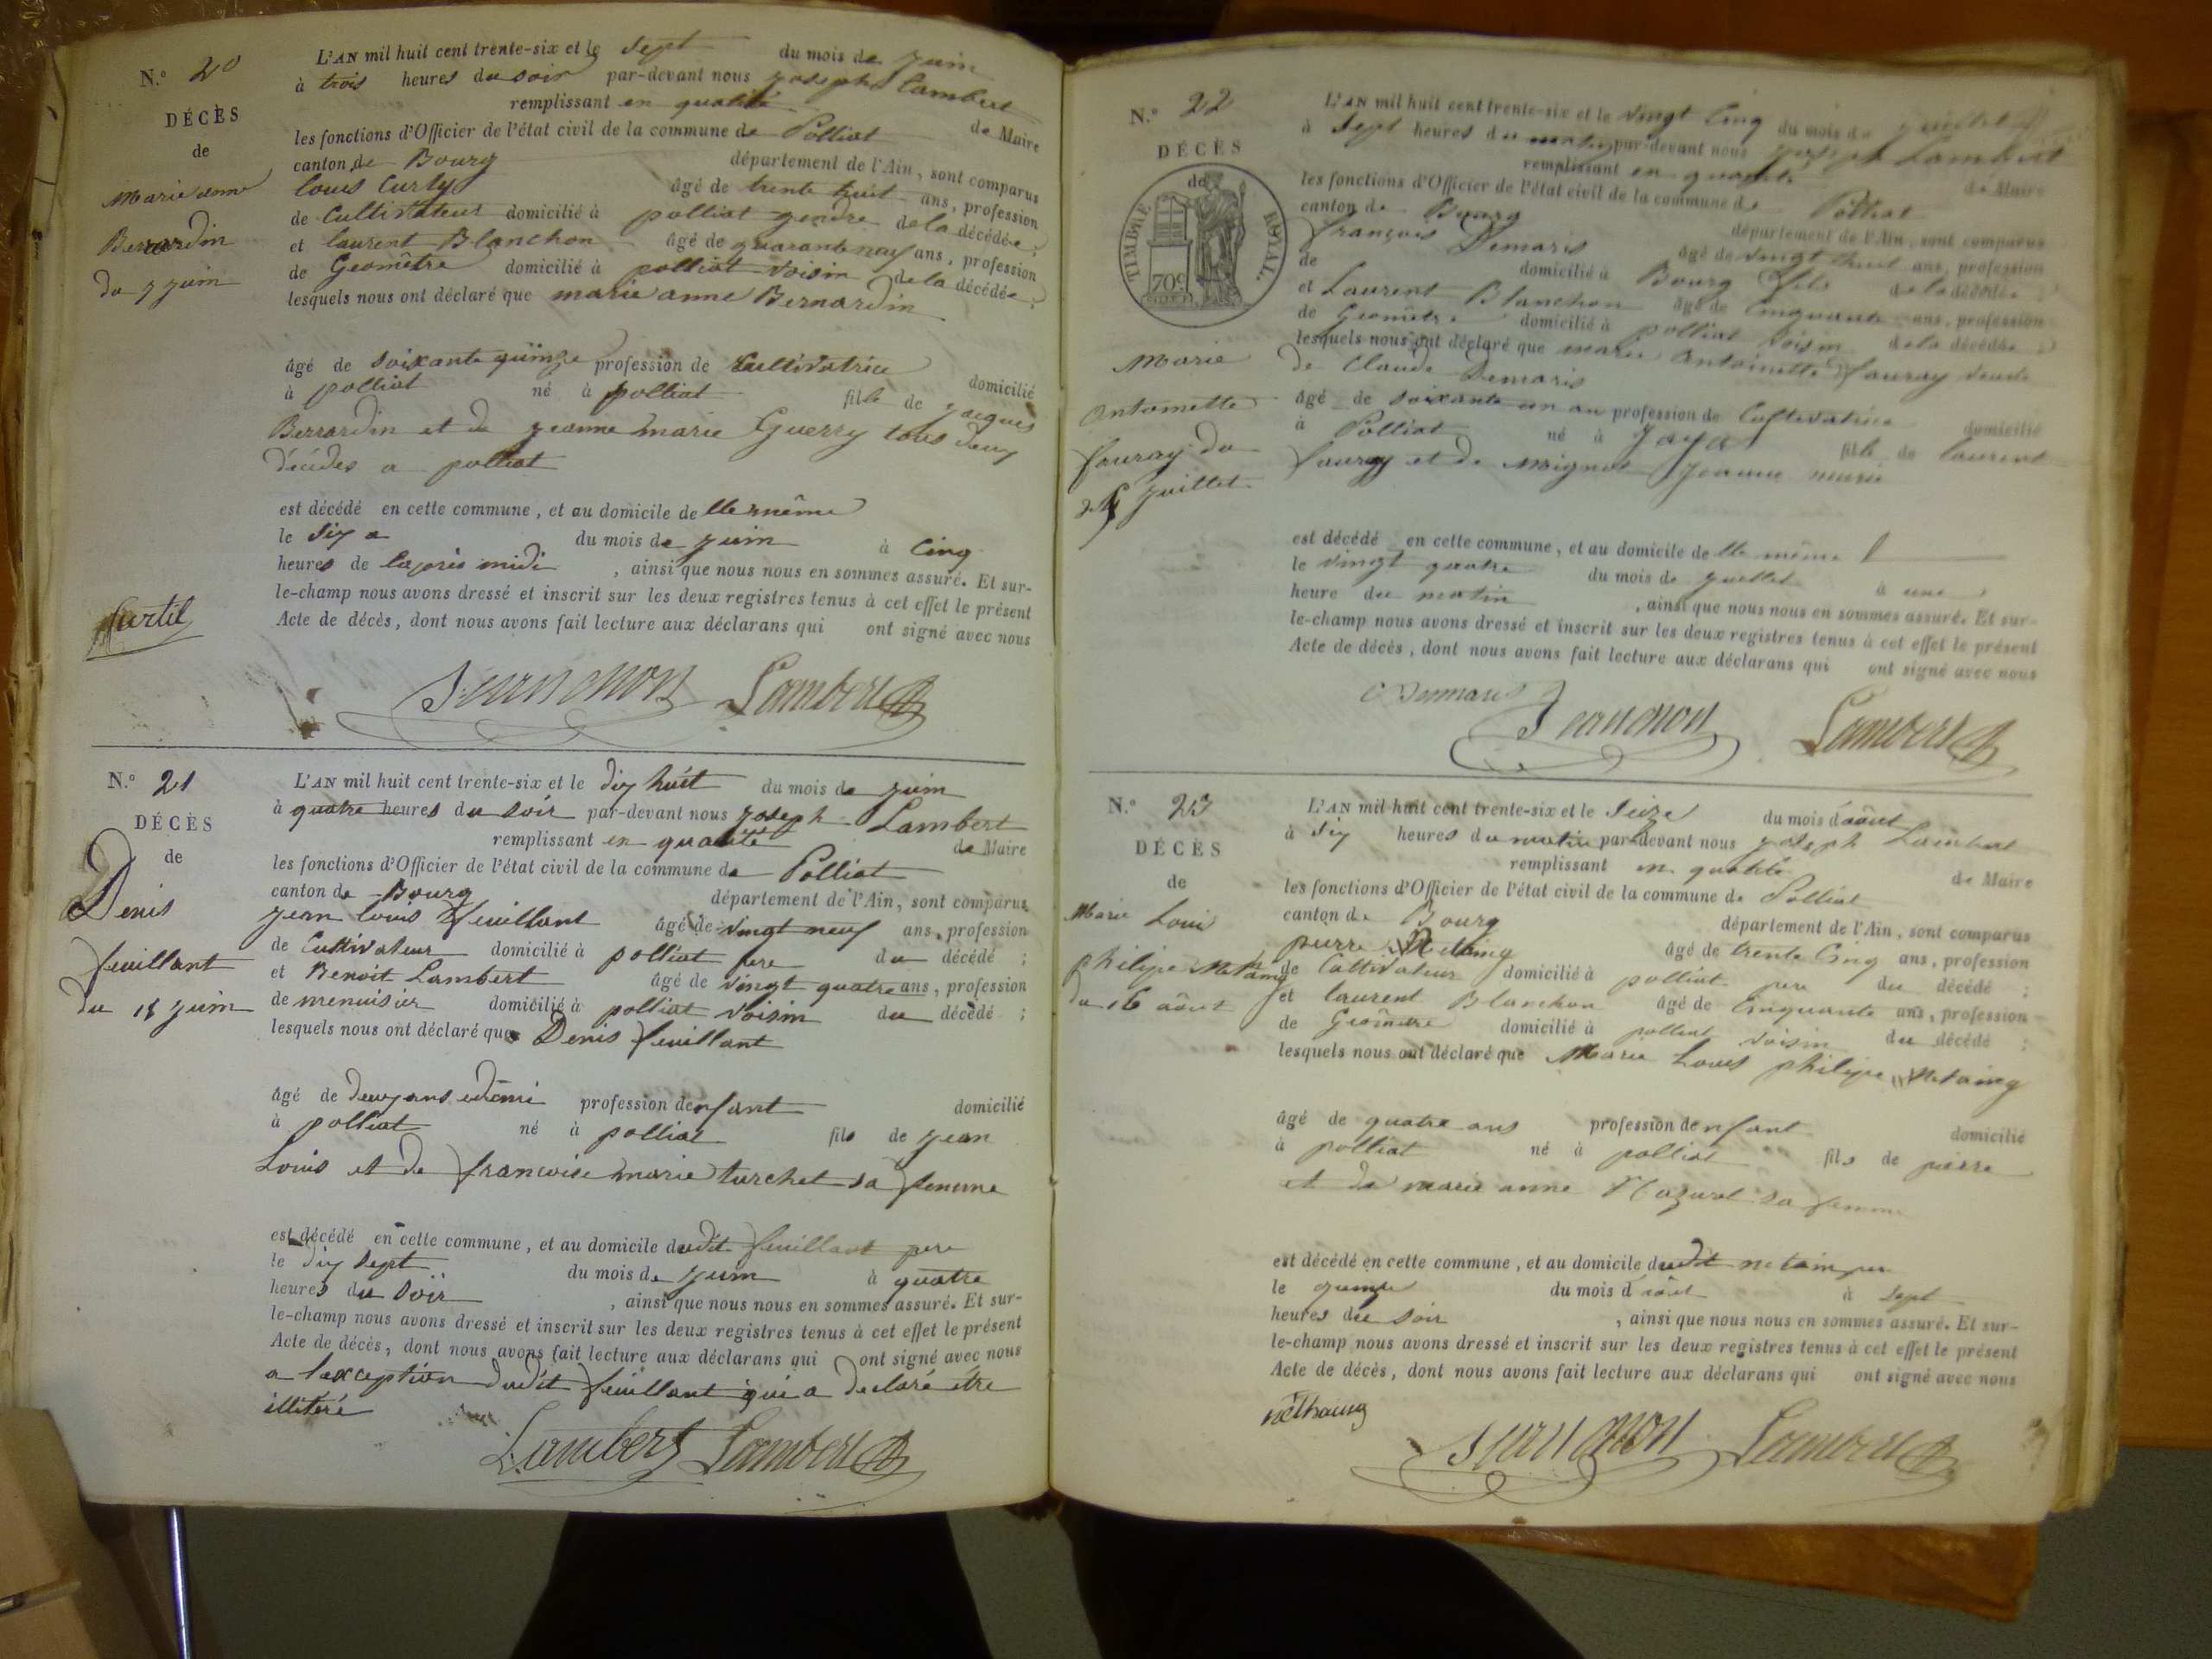 N.° 20
DÉCÈS
de
Marie anne
Bernardin
du 7 juin
L'AN mil huit cent trente-six et le sept du mois de juin
à trois heures du soir par-devant nous joseph Lambert
remplissant en qualité de Maire
les fonctions d'Officier de l'état civil de la commune de Polliat
canton de Bourg département de l'Ain, sont comparus
louis Curty âgé de trente huit ans, profession
de Cultivateur domicilié à polliat gendre de la décédée;
et laurent Blanchon âgé de quarante neuf ans, profession
de Geomêtre domicilié à polliat voisin de la décédée;
lesquels nous ont déclaré que marie anne Bernardin
âgé de soixante quinze profession de Cultivatrice domicilié
à polliat né à polliat fille de jacques
Bernardin et de jeanne marie Guerry tous deux
décédes a polliat
est décédé en cette commune, et au domicile de elle même
le six a du mois de juin à Cinq
heures de laprès midi, ainsi que nous nous en sommes assuré. Et sur-
le-champ nous avons dressé et inscrit sur les deux registres tenus à cet effet le présent
Acte de décès, dont nous avons fait lecture aux déclarans qui ont signé avec nous
Curtil
Blanchon Lambert
N.° 21
DÉCÈS
de
Denis
feuillant
du 18 juin
L'AN mil huit cent trente-six et le dix huit du mois de juin
à quatre heures du soir par-devant nous joseph Lambert
remplissant en qualité de Maire
les fonctions d'Officier de l'état civil de la commune de Polliat
canton de Bourg département de l'Ain, sont comparus
jean louis feuillant âgé de vingt neuf ans, profession
de Cultivateur domicilié à polliat pere du décédé;
et Benoit Lambert âgé de vingt quatre ans, profession
de menuisier domicilié à polliat voisin du décédé;
lesquels nous ont déclaré que Denis feuillant
âgé de deux ans edemi profession denfant domicilié
à polliat né à polliat fils de jean
Louis et de francoise marie turchet sa femme
est décédé en cette commune, et au domicile dudit feuillant pere
le dix sept du mois de juin à quatre
heures du soir, ainsi que nous nous en sommes assuré. Et sur-
le-champ nous avons dressé et inscrit sur les deux registres tenus à cet effet le présent
Acte de décès, dont nous avons fait lecture aux déclarans qui ont signé avec nous
a lexception dudit feuillant qui a declaré etre
illitéré
Lambert Lambert
N.° 22
DÉCÈS
de
TIMBRE ROYAL.
70c
Marie
antoinette
fauray du
25 juillet
L'AN mil huit cent trente-six et le vingt Cinq du mois de juillet
à sept heures du matin par-devant nous joseph Lambert
remplissant en qualité de Maire
les fonctions d'Officier de l'état civil de la commune de Polliat
canton de Bourg département de l'Ain, sont comparus
françois Demaris âgé de vingt huit ans, profession
de domicilié à Bourg fils de la décédée;
et Laurent Blanchon âgé de Cinquante ans, profession
de Geomêtre domicilié à polliat voisin de la décédée;
lesquels nous ont déclaré que marie antoinette fauray veuve
de Claude Demaris
âgé de soixante un an profession de Cultivatrice domicilié
à Polliat né à Jayat fille de laurent
fauray et de Jeanne marie
est décédé en cette commune, et au domicile de elle même
le vingt quatre du mois de juillet à une
heure du matin, ainsi que nous nous en sommes assuré. Et sur-
le-champ nous avons dressé et inscrit sur les deux registres tenus à cet effet le présent
Acte de décès, dont nous avons fait lecture aux déclarans qui ont signé avec nous
Demaris Blanchon Lambert
N.° 23
DÉCÈS
de
Marie Louis
philipe Metaing
du 16 aôut
L'AN mil huit cent trente-six et le seize du mois d'aôut
à six heures du matin par-devant nous joseph Lambert
remplissant en qualité de Maire
les fonctions d'Officier de l'état civil de la commune de Polliat
canton de Bourg département de l'Ain, sont comparus
pierre Netaing âgé de trente Cinq ans, profession
de Cultivateur domicilié à polliat pere du décédé;
et laurent Blanchon âgé de Cinquante ans, profession
de Geomêtre domicilié à polliat voisin du décédé;
lesquels nous ont déclaré que Marie Louis philipe Netaing
âgé de quatre ans profession denfant domicilié
à polliat né à polliat fils de pierre
et de marie anne sa femme
est décédé en cette commune, et au domicile dudit netain pere
le quinze du mois d'aôut à sept
heures du soir, ainsi que nous nous en sommes assuré. Et sur-
le-champ nous avons dressé et inscrit sur les deux registres tenus à cet effet le présent
Acte de décès, dont nous avons fait lecture aux déclarans qui ont signé avec nous
nethaing
Blanchon Lambert